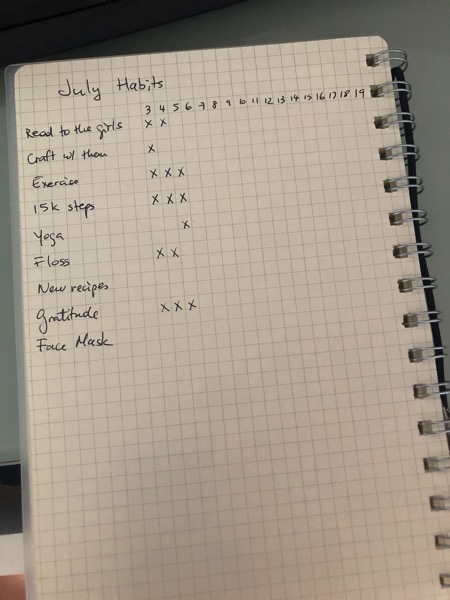 July Habits
3 4 5 6 7 8 9 10 11 12 13 14 15 16 17 18 19
Read to the girls x x
Craft w/ them x
Exercise x x x
15k steps x x x
Yoga x
Floss x x
New recipes
Gratitude x x x
Face Mask